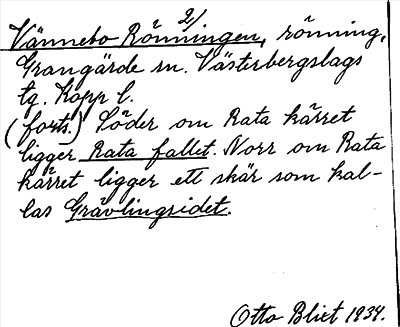 2/
Vännebo Rönningen, rönning,
Grangärde sn. Västerbergslags
tg. Kopp l.
(forts.) Söder om Rata kärret
ligger Rata fallet. Norr om Rata
kärret ligger ett skär som kal-
las Grävlingsidet.
Otto Blixt 1934.